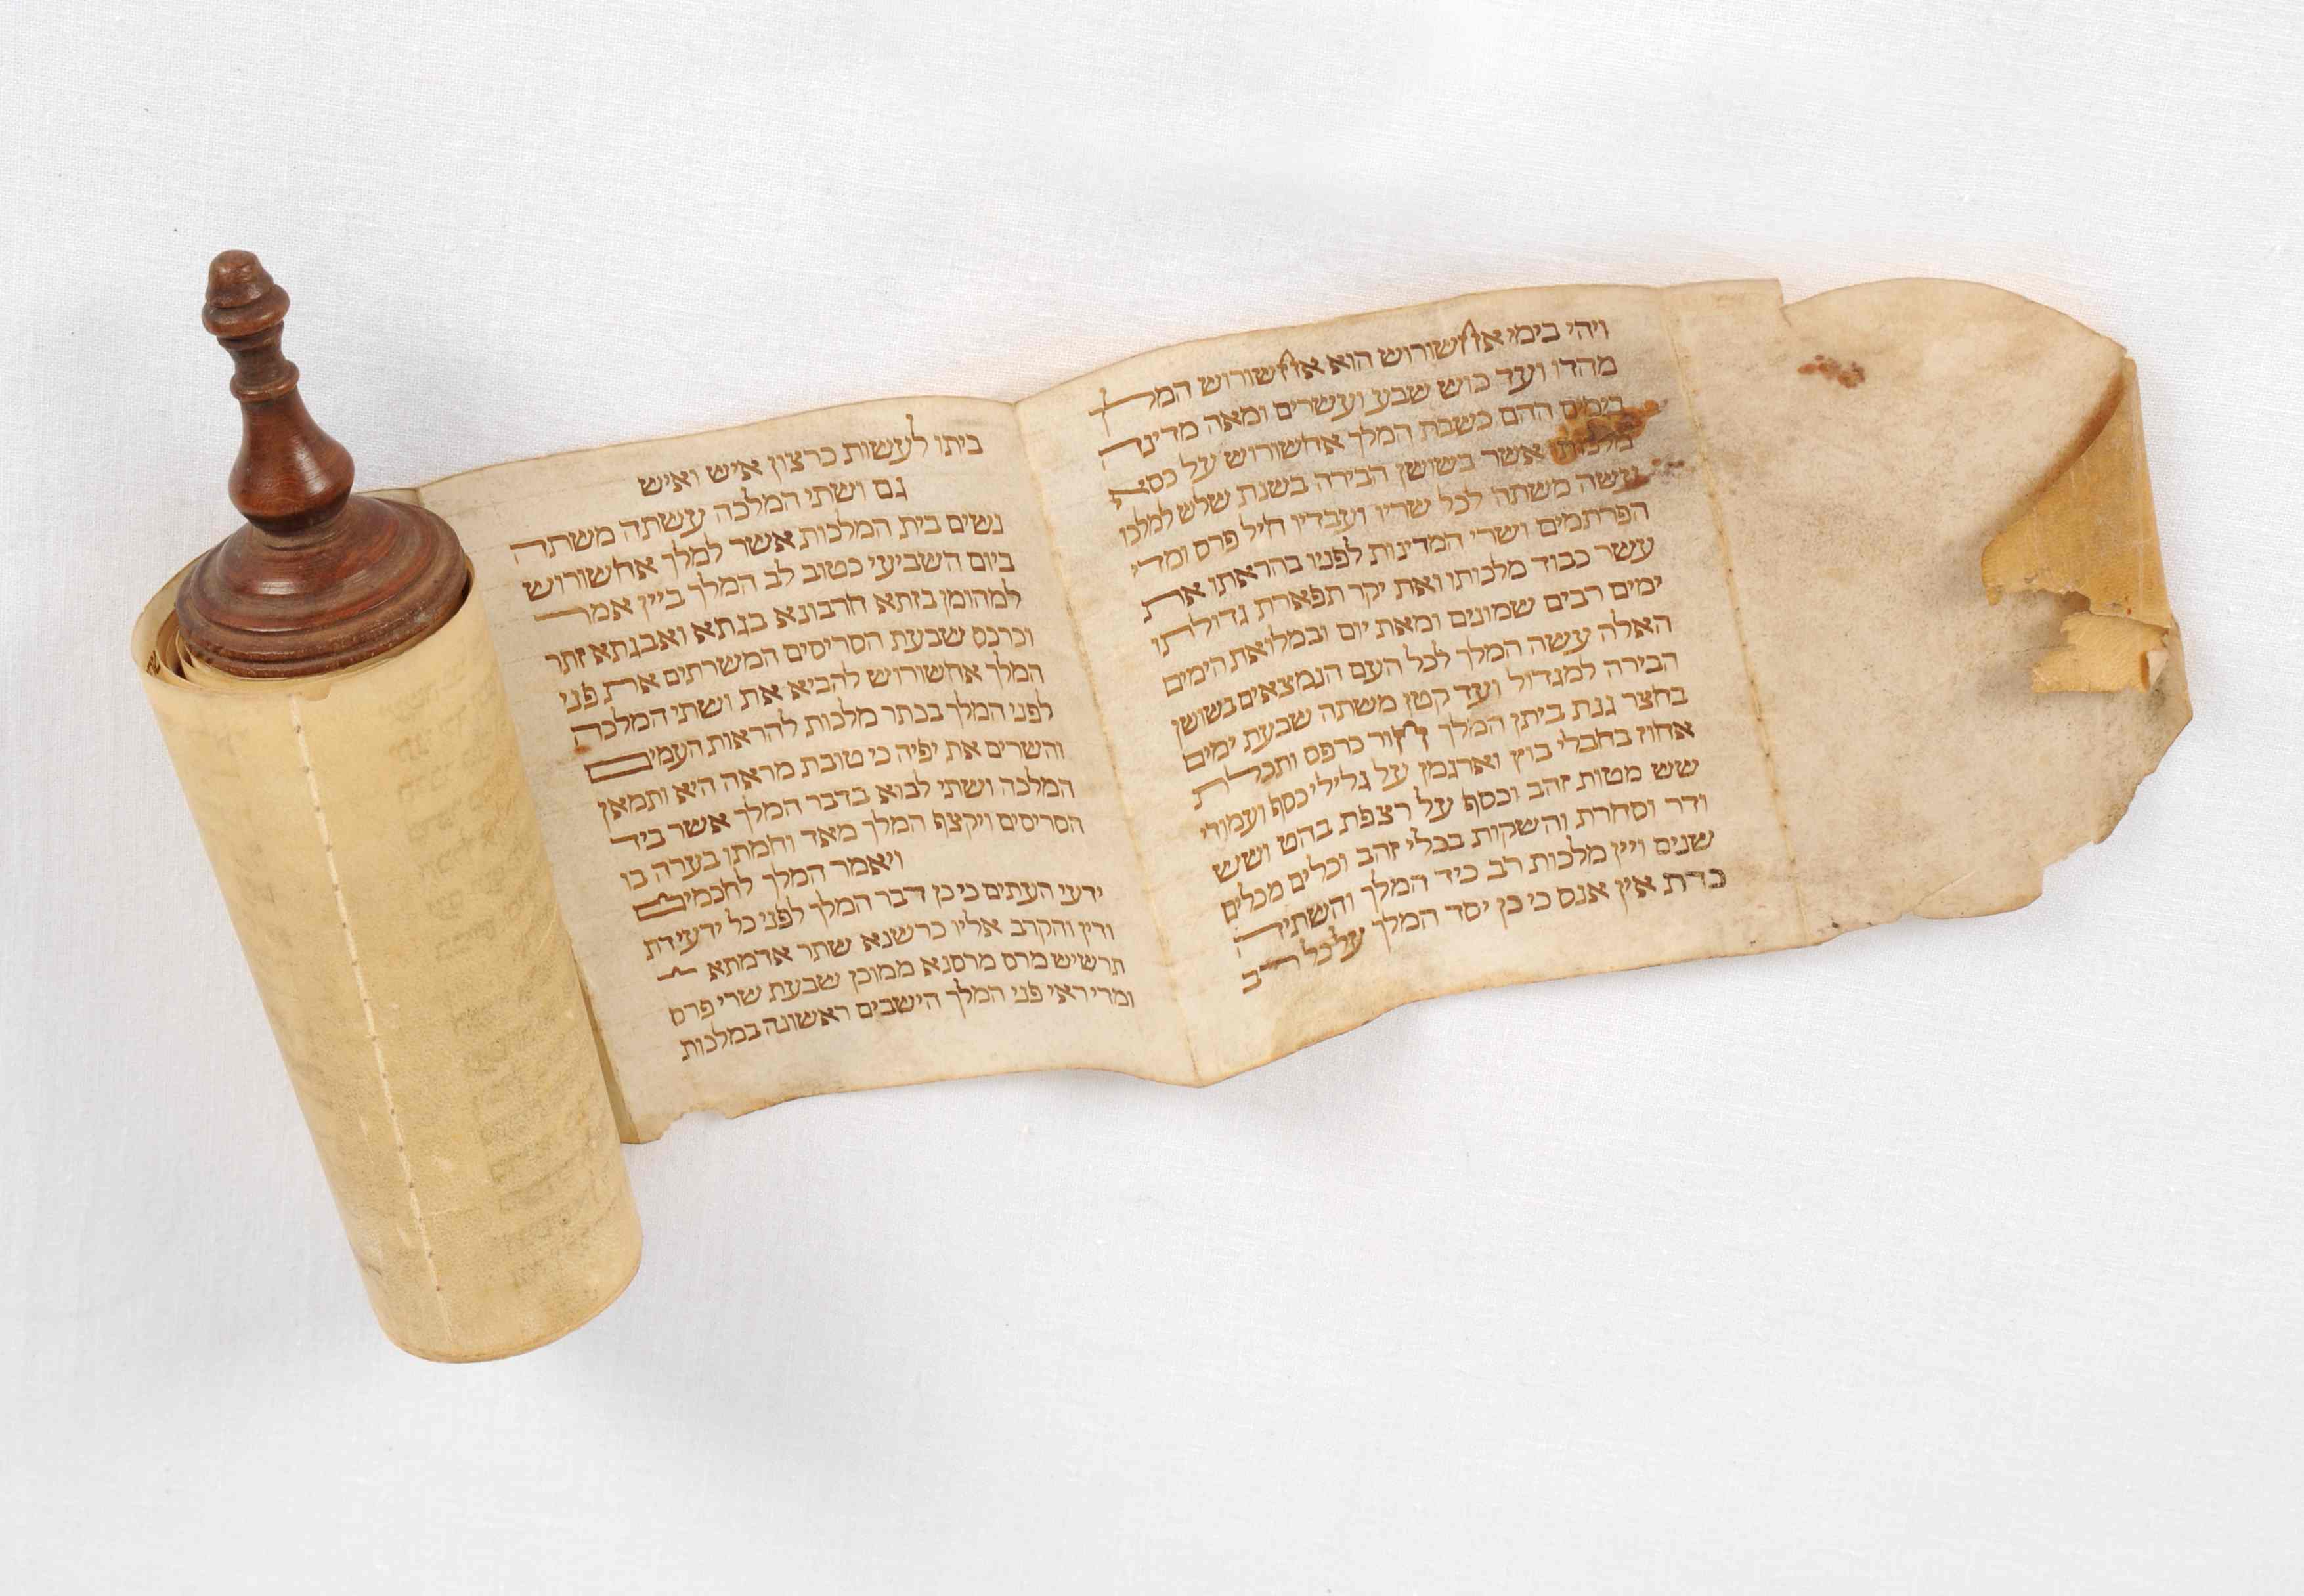 ויהי בימי אחשורוש הוא אחשורוש המלך
מהדו ועד כוש שבע ועשרים ומאה מדינה
בימים ההם כשבת המלך אחשורוש על כסא
מלכותו אשר בשושן הבירה בשנת שלש למלכו
עשה משתה לכל שריו ועבדיו חיל פרס ומדי
הפרתמים ושרי המדינות לפניו בהראתו את
עשר כבוד מלכותו ואת יקר תפארת גדולתו
ימים רבים שמונים ומאת יום ובמלואת הימים
האלה עשה המלך לכל העם הנמצאים בשושן
הבירה למגדול ועד קטן משתה שבעת ימים
בחצר גנת ביתן המלך חור כרפס ותכלת
אחוז בחבלי בוץ וארגמן על גלילי כסף ועמודי
שש מטות זהב וכסף על רצפת בהט ושש
ודר וסחרת והשקות בכלי זהב וכלים מכלים
שונים ויין מלכות רב כיד המלך והשתיה
כדת אין אנס כי כן יסד המלך על כל רב
ביתו לעשות כרצון איש ואיש
גם ושתי המלכה עשתה משתה
נשים בית המלכות אשר למלך אחשורוש
ביום השביעי כטוב לב המלך ביין אמר
למהומן בזתא חרבונא בגתא ואבגתא זתר
וכרכס שבעת הסריסים המשרתים את פני
המלך אחשורוש להביא את ושתי המלכה
לפני המלך בכתר מלכות להראות העמים
והשרים את יפיה כי טובת מראה היא ותמאן
המלכה ושתי לבוא בדבר המלך אשר ביד
הסריסים ויקצף המלך מאד וחמתו בערה בו
ויאמר המלך לחכמים
ידעי העתים כי כן דבר המלך לפני כל ידעי דת
ודין והקרב אליו כרשנא שתר אדמתא
תרשיש מרס מרסנא ממוכן שבעת שרי פרס
ומדי ראי פני המלך הישבים ראשונה במלכות